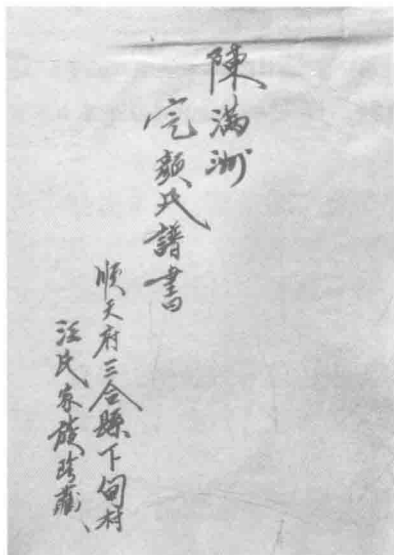 陳滿洲
完顏氏譜書
順天府三合縣下甸村
汪氏家族珍藏